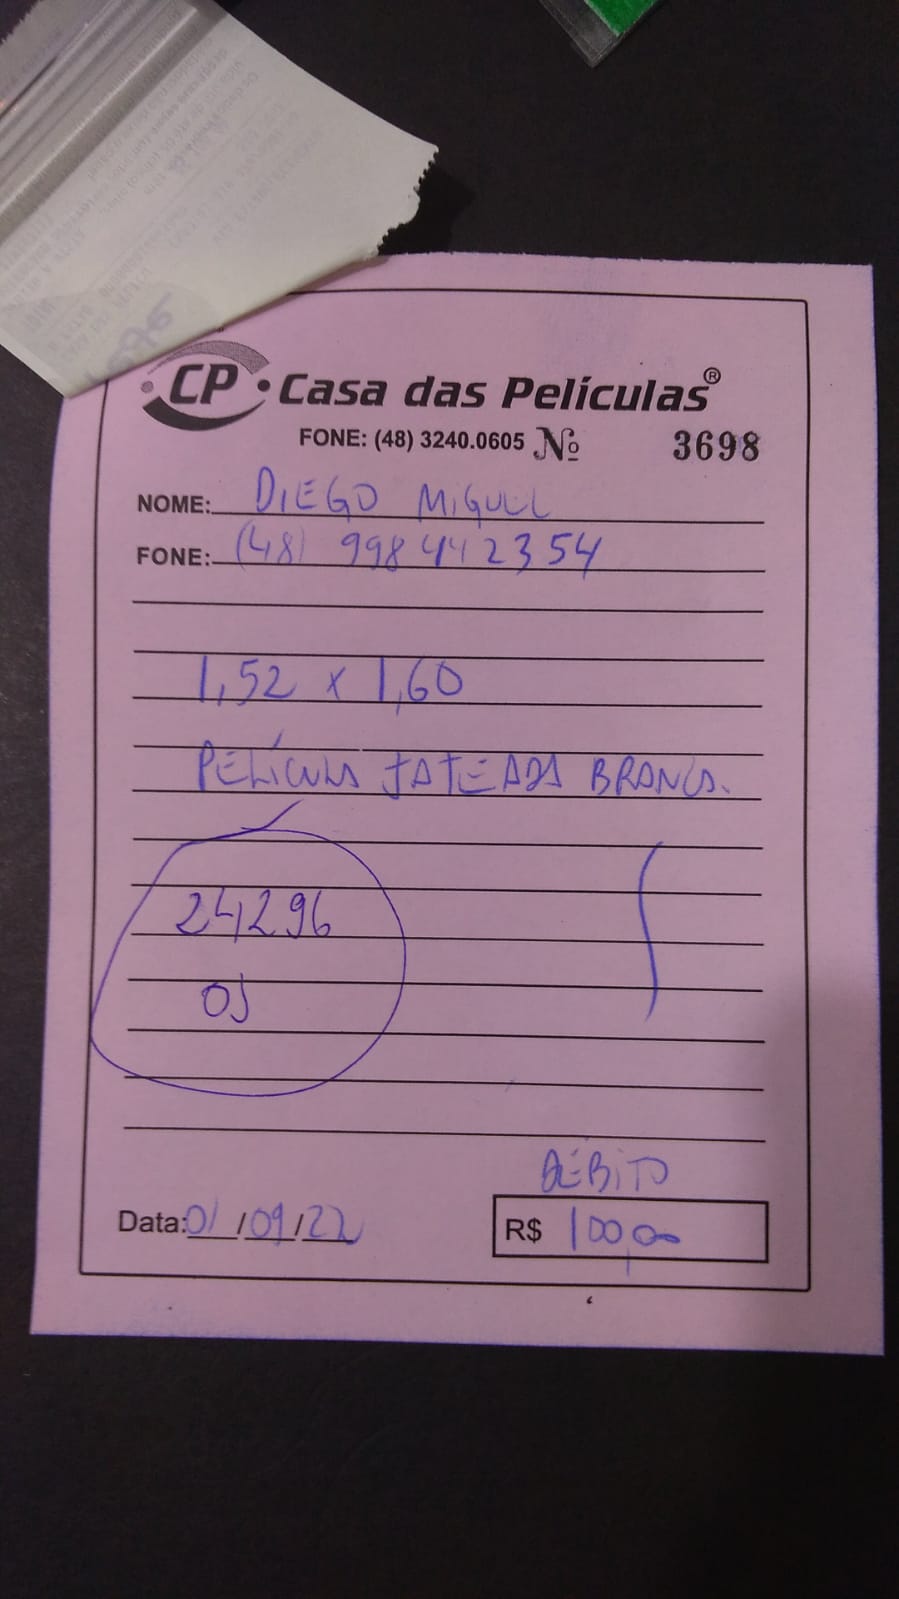 CP • Casa das Películas®
FONE: (48) 3240.0605 Nº 3698
NOME: DIEGO MIGUEL
FONE: (48) 998442354
1,52 x 1,60
PELÍCULA JATEADA BRANCA.
24296
OJ
DÉBITO
Data: 01/09/22 R$ 100,00